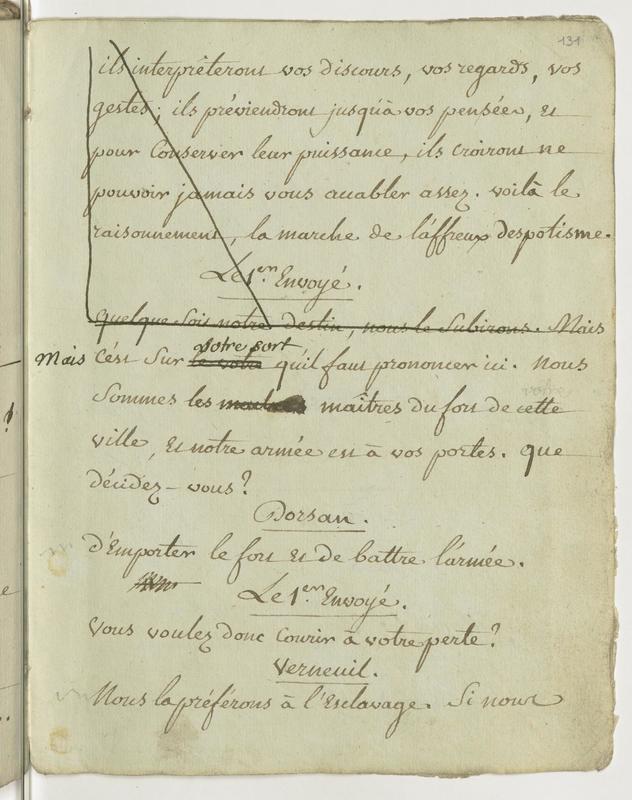 131
ils interprêteront vos discours, vos regards, vos
gestes; ils préviendront jusqu'à vos pensées, et
pour Conserver leur puissance, ils croiront ne
pouvoir jamais vous accabler assez. voilà le
raisonnement, la marche de l'affreux despotisme.
Le 1er. Envoyé.
quelque soit notre destin, nous le Subirons. Mais
votre sort
Mais C'est Sur le votre qu'il faut prononcer ici. Nous
Sommes les maitres du fort de cette
ville, et notre armée est à vos portes. que
décidez-vous?
Dorsan.
d'Emporter le fort et de battre l'armée.
Le 1er. Envoyé.
Vous voulez donc Courir à votre perte?
Verneuil.
Nous la préférons à l'Esclavage. Si nous